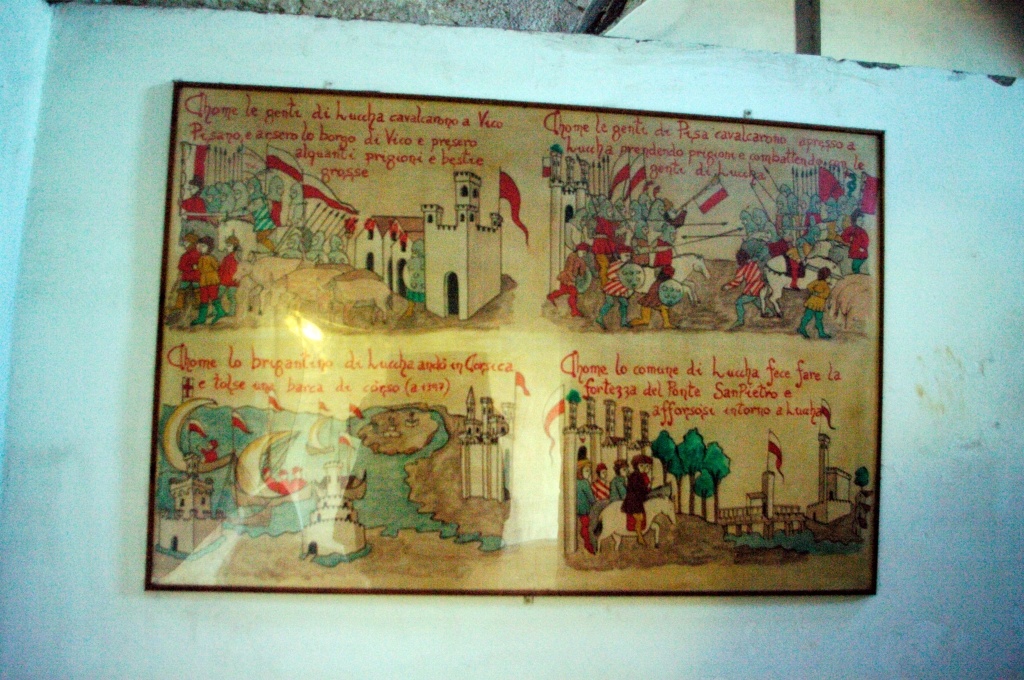 Chome le genti di Luccha cavalcarono a Vico
Pisano, e arsero lo borgo di Vico e presero
alquanti prigioni e bestie
grosse
Chome le genti di Pisa cavalcarono apresso a
Luccha prendendo prigioni e combattendo con le
genti di Luccha
Chome lo brigantino di Luccha andò in Corsica
e tolse una barca di corso (a 1397)
Chome lo comune di Luccha fece fare la
fortezza del Ponte SanPietro e
afforsosi intorno a Luccha